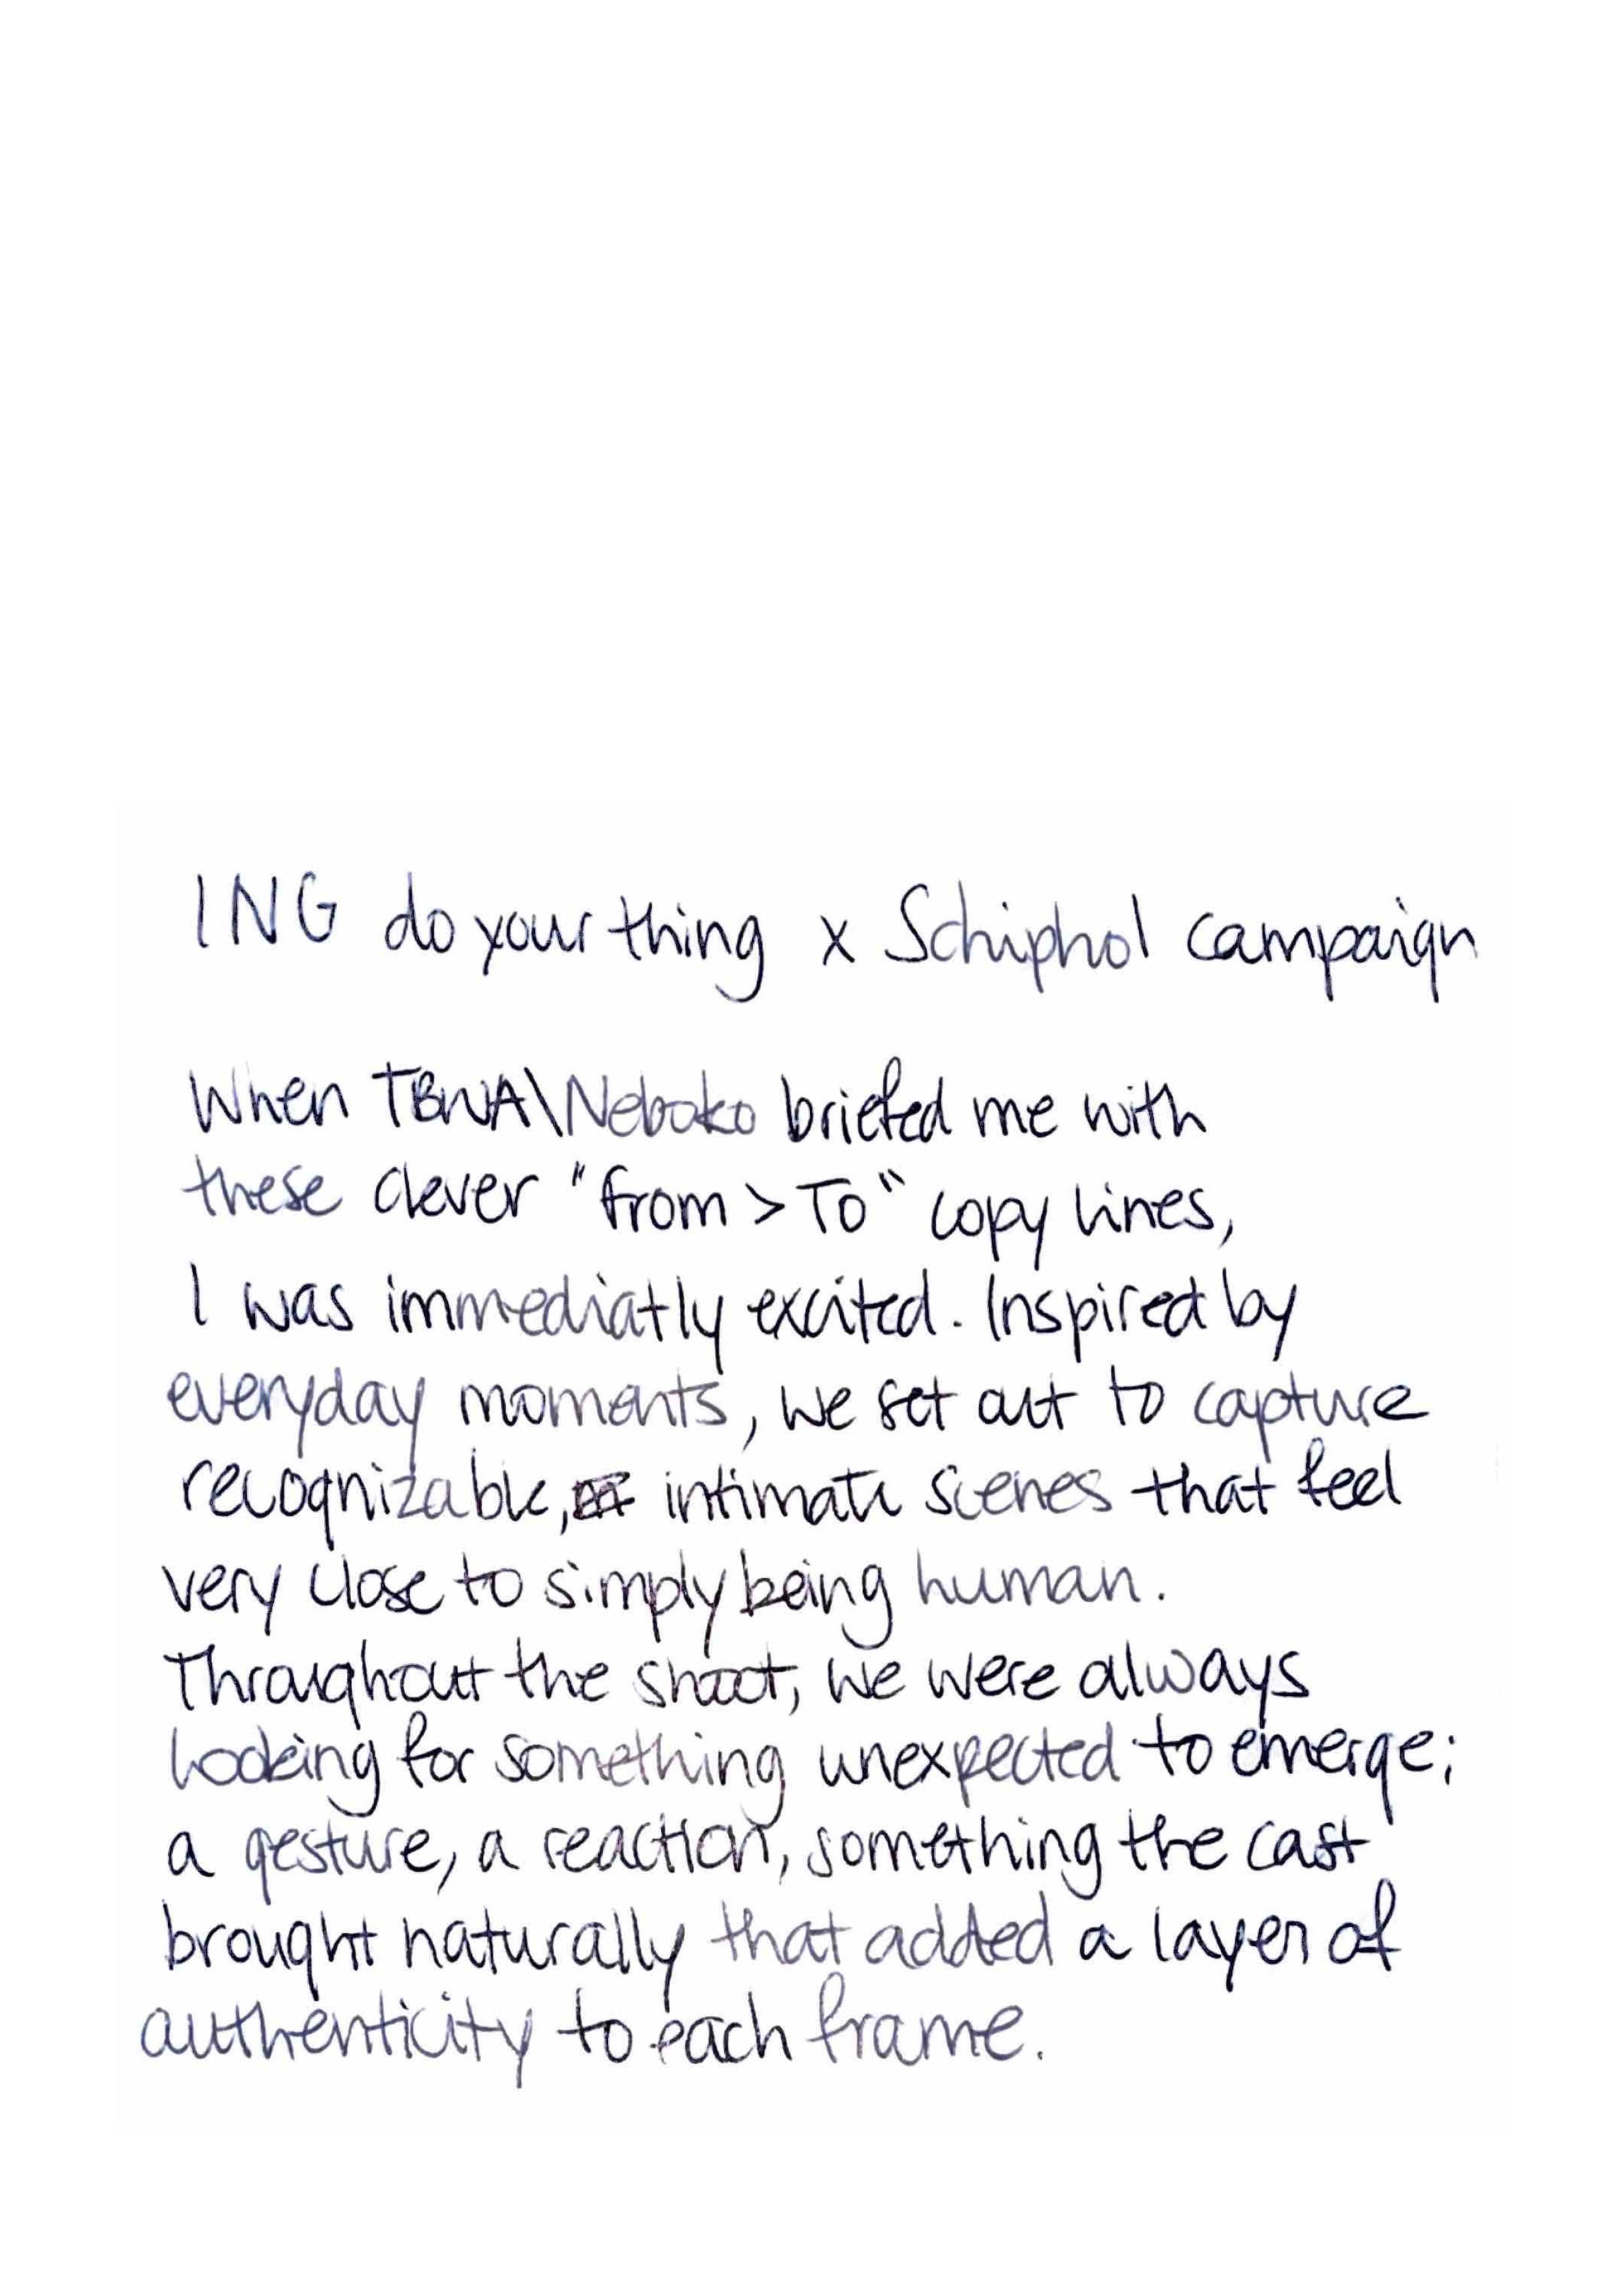 ING do your thing x Schiphol campaign
When TBWA\Neboko briefed me with
these clever "from > To" copy lines,
I was immediatly excited. Inspired by
everyday moments, we set out to capture
recognizable, intimate scenes that feel
very close to simply being human.
Throughout the shoot, we were always
looking for something unexpected to emerge;
a gesture, a reaction, something the cast
brought naturally that added a layer of
authenticity to each frame.